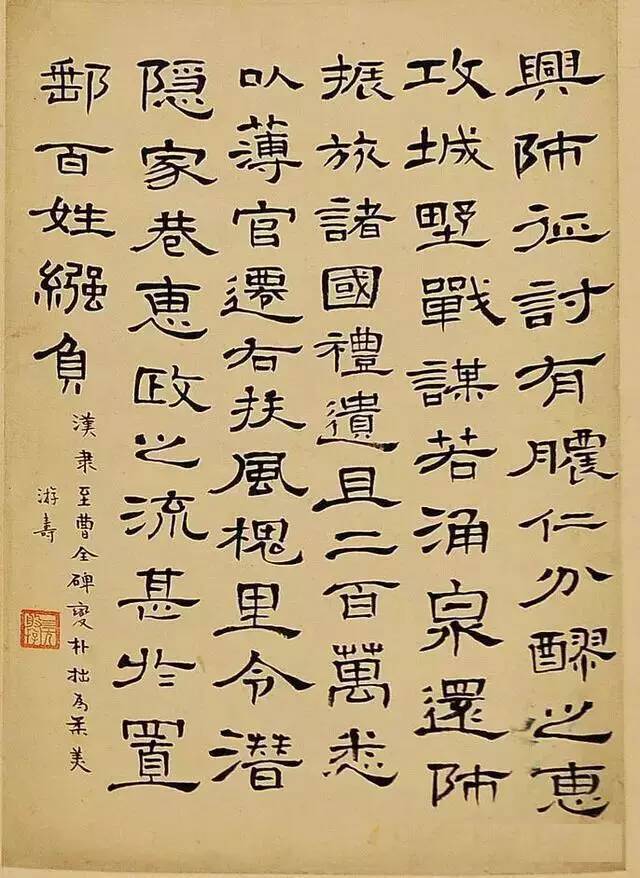 興師征討有䐅仁分醪之惠
攻城墅戰謀若涌泉還師
振旅諸國禮遺且二百萬悉
以薄官遷右扶風槐里令潛
隐家巷惠政之流甚於置
郵百姓繦負
漢隶至曹全碑變朴拙為柔美
游壽